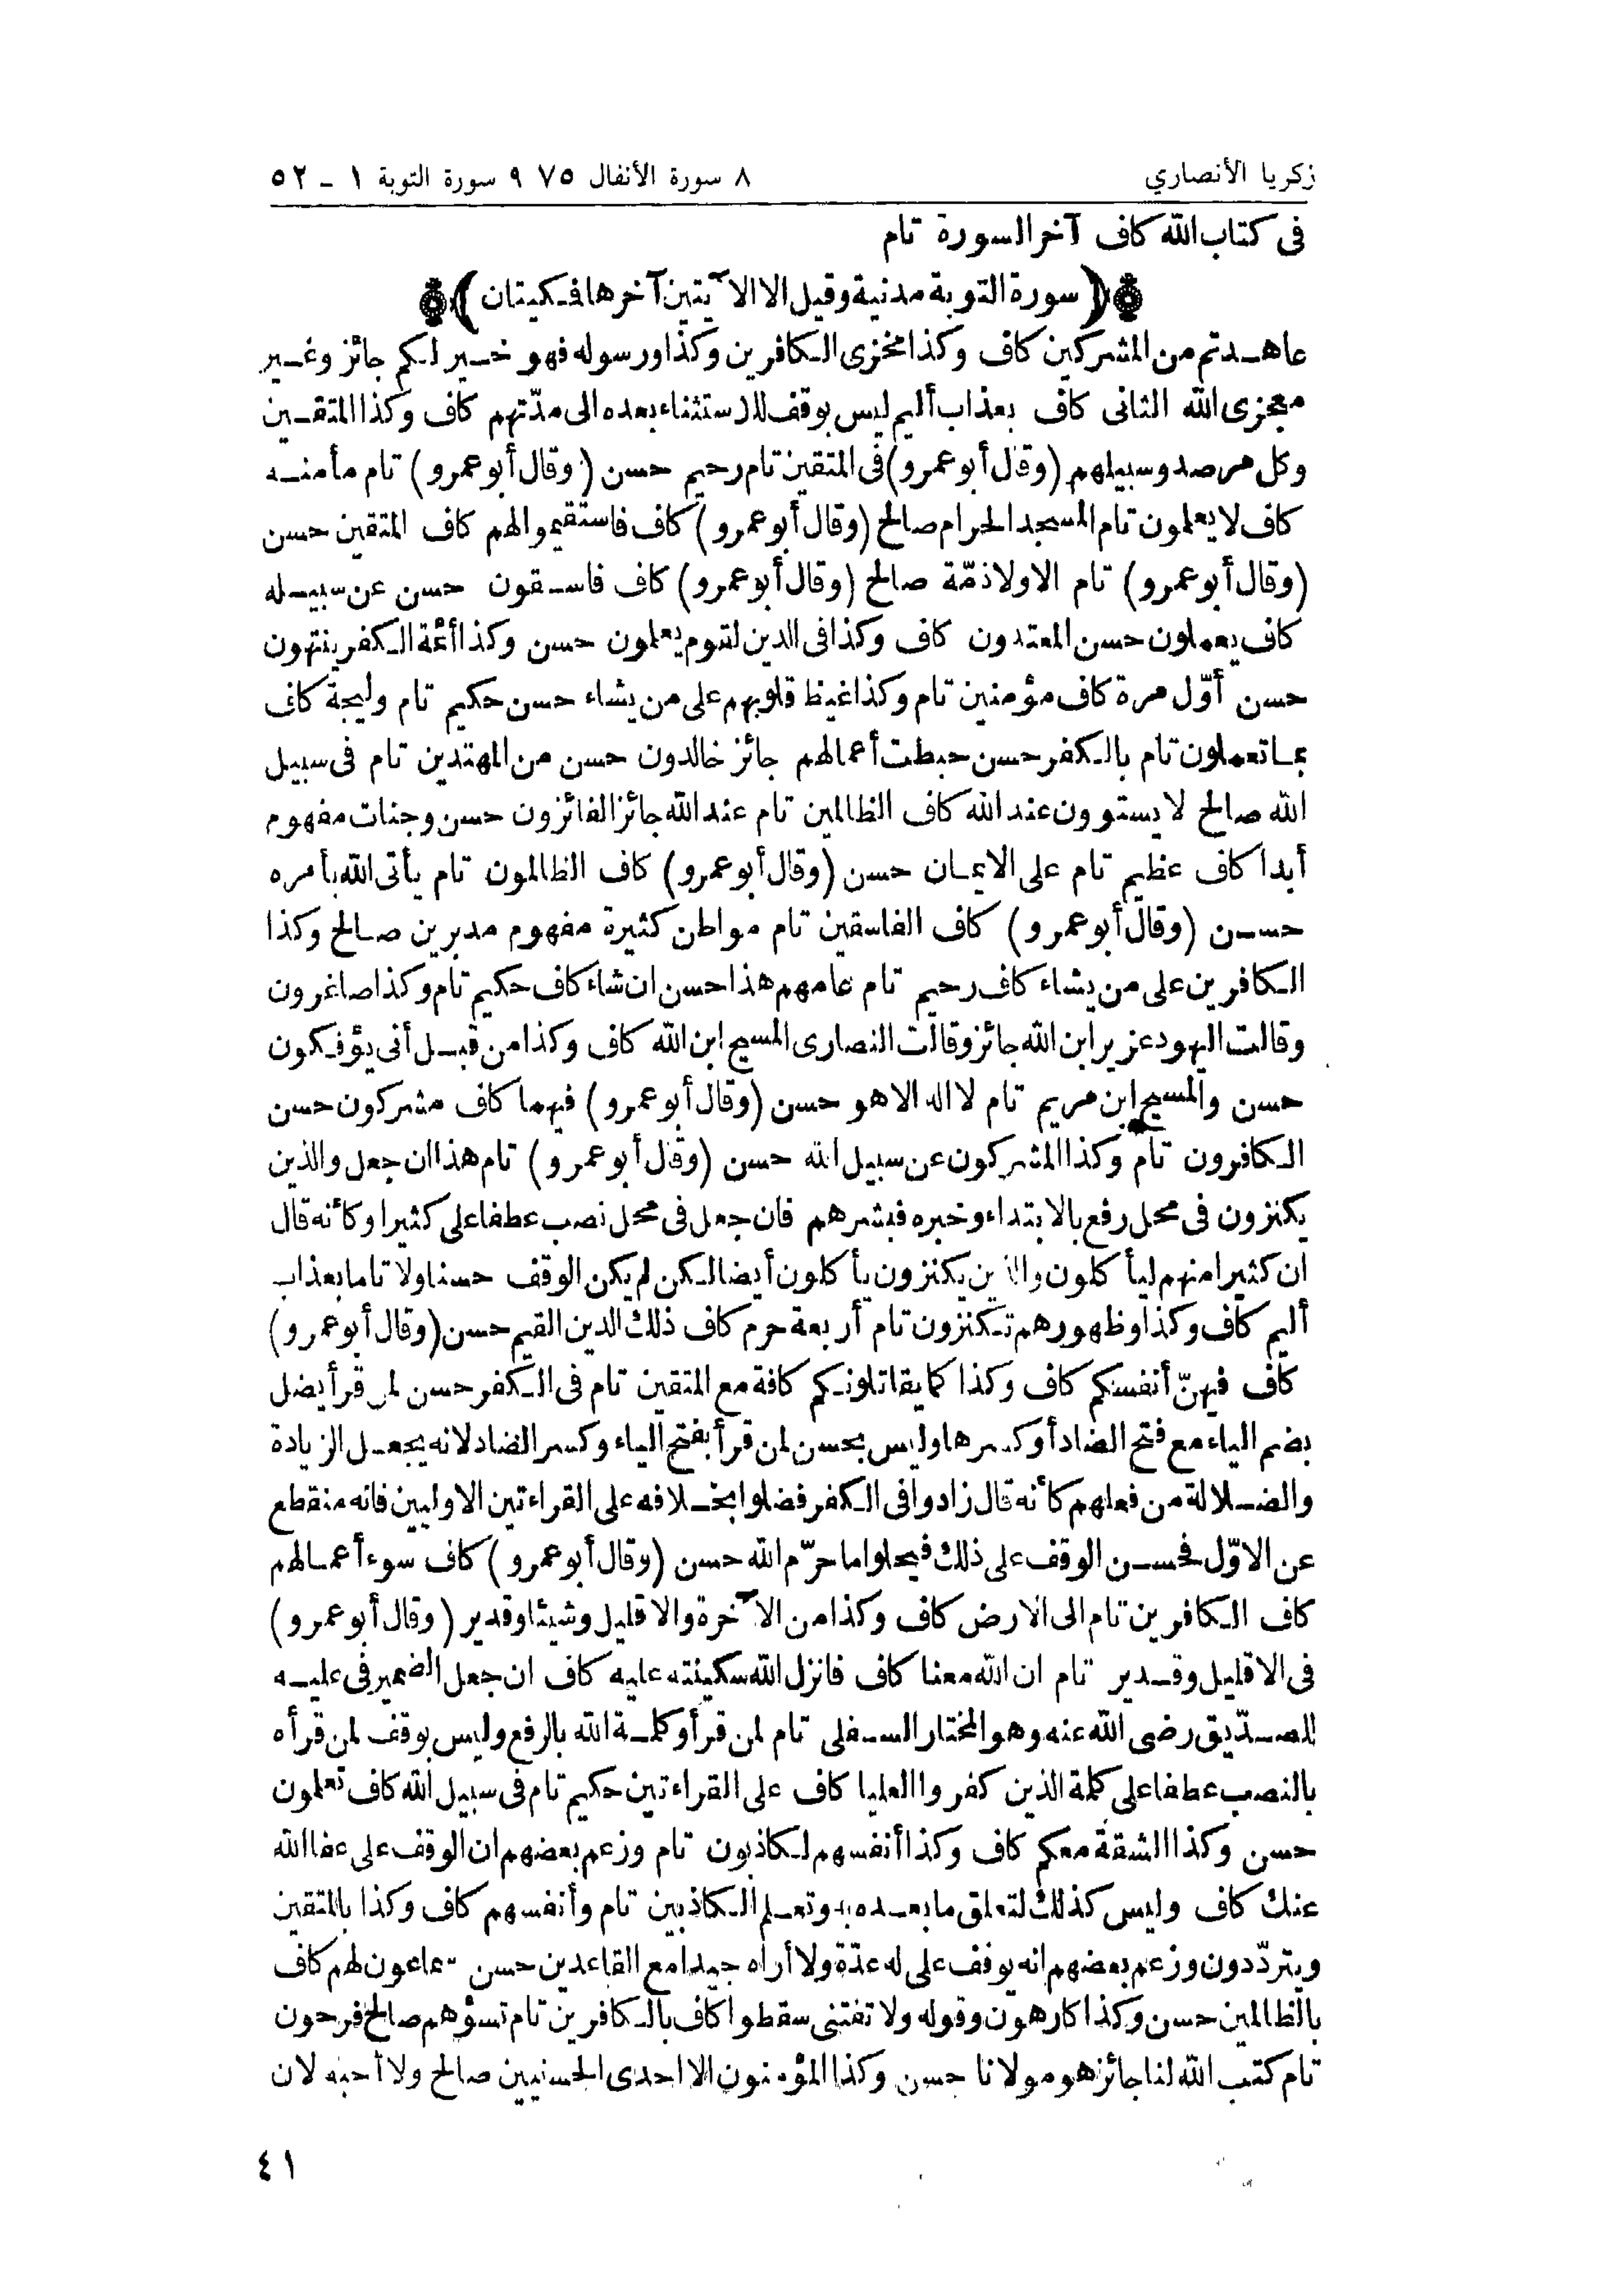 زكريا الأنصاري
٨ سورة الأنفال ٧٥ ٩ سورة التوبة ١ - ٥٢
فى كتاب الله كاف آخر السورة تام
﴿سورة التوبة مدنية وقيل الا الآيتين آخرها فمكيتان﴾
عاهدتم من المشركين كاف وكذا مخزى الكافرين وكذا ورسوله فهو خير لكم جائز وغير
معجزى الله الثانى كاف بعذاب أليم ليس بوقف للاستثناء بعده الى مدّتهم كاف وكذا المتقين
وكل مرصد وسبيلهم (وقال أبو عمرو) فى المتقين تام رحيم حسن (وقال أبو عمرو) تام مأمنه
كاف لا يعلمون تام المسجد الحرام صالح (وقال أبو عمرو) كاف فاستقيموا لهم كاف المتقين حسن
(وقال أبو عمرو) تام الا ولا ذمّة صالح (وقال أبو عمرو) كاف فاسقون حسن عن سبيله
كاف يعملون حسن المعتدون كاف وكذا فى الدين لقوم يعلمون حسن وكذا أئمة الكفر ينتهون
حسن أوّل مرة كاف مؤمنين تام وكذا غيظ قلوبهم على من يشاء حسن حكيم تام وليجة كاف
بما تعملون تام بالكفر حسن حبطت أعمالهم جائز خالدون حسن من المهتدين تام فى سبيل
الله صالح لا يستوون عند الله كاف الظالمين تام عند الله جائز الفائزون حسن وجنات مفهوم
أبدا كاف عظيم تام على الايمان حسن (وقال أبو عمرو) كاف الظالمون تام يأتى الله بأمره
حسن (وقال أبو عمرو) كاف الفاسقين تام مواطن كثيرة مفهوم مدبرين صالح وكذا
الكافرين على من يشاء كاف رحيم تام عامهم هذا حسن ان شاء كاف حكيم تام وكذا صاغرون
وقالت اليهود عزير ابن الله جائز وقالت النصارى المسيح ابن الله كاف وكذا من قبل أنى يؤفكون
حسن والمسيح ابن مريم تام لا اله الا هو حسن (وقال أبو عمرو) فيهما كاف مشركون حسن
الكافرون تام وكذا المشركون عن سبيل الله حسن (وقال أبو عمرو) تام هذا ان جعل والذين
يكنزون فى محل رفع بالابتداء وخبره فبشرهم فان جعل فى محل نصب عطفا على كثيرا وكأنه قال
ان كثيرا منهم ليأكلون والذين يكنزون يأكلون أيضا لكن لم يكن الوقف حسنا ولا تاما بعذاب
أليم كاف وكذا وظهورهم تكنزون تام أربعة حرم كاف ذلك الدين القيم حسن (وقال أبو عمرو)
كاف فيهنّ أنفسكم كاف وكذا كما يقاتلونكم كافة مع المتقين تام فى الكفر حسن لمن قرأ يضل
بضم الياء مع فتح الضاد أو كسرها وليس بحسن لمن قرأ بفتح الياء وكسر الضاد لانه يجعل الزيادة
والضلالة من فعلهم كأنه قال زادوا فى الكفر فضلوا بخلافه على القراءتين الاوليين فانه منقطع
عن الاوّل فحسن الوقف على ذلك فيحلوا ما حرّم الله حسن (وقال أبو عمرو) كاف سوء أعمالهم
كاف الكافرين تام الى الارض كاف وكذا من الآخرة والا قليل وشيئا وقدير (وقال أبو عمرو)
فى الا قليل وقدير تام ان الله معنا كاف فانزل الله سكينته عليه كاف ان جعل الضمير فى عليه
للصدّيق رضى الله عنه وهو المختار السفلى تام لمن قرأ وكلمة الله بالرفع وليس بوقف لمن قرأه
بالنصب عطفا على كلمة الذين كفروا العليا كاف على القراءتين حكيم تام فى سبيل الله كاف تعلمون
حسن وكذا الشقة معكم كاف وكذا أنفسهم لكاذبون تام وزعم بعضهم ان الوقف على عفا الله
عنك كاف وليس كذلك لتعلق ما بعده به وتعلم الكاذبين تام وأنفسهم كاف وكذا بالمتقين
ويتردّدون وزعم بعضهم انه يوقف على له عدّة ولا أراه جيدا مع القاعدين حسن سماعون لهم كاف
بالظالمين حسن وكذا كارهون وقوله ولا تفتنى سقطوا كاف بالكافرين تام تسؤهم صالح فرحون
تام كتب الله لنا جائز هو مولانا حسن وكذا المؤمنون الا احدى الحسنيين صالح ولا أحبه لان
٤١